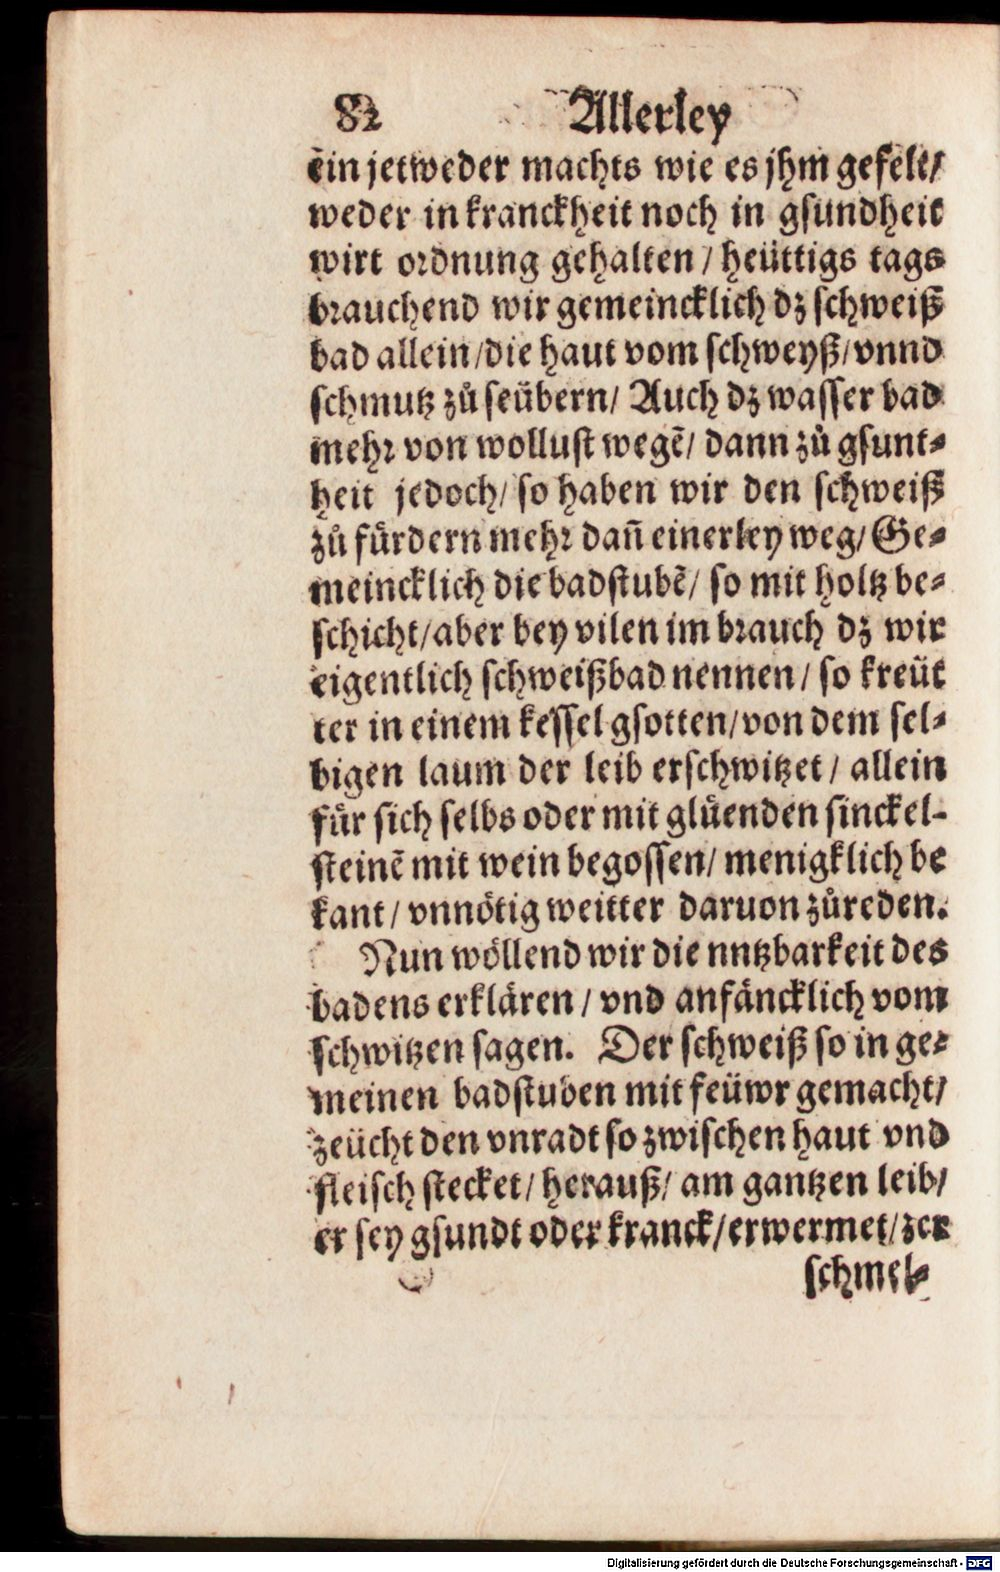 82 Allerley
ein jetweder machts wie es jhm gefelt/
weder in kranckheit noch in gsundheit
wirt ordnung gehalten / heüttigs tags
brauchend wir gemeincklich dz schweiß
bad allein/die haut vom schweyß/vnnd
schmutz zů seübern/ Auch dz wasser bad
mehr von wollust wegē/ dann zů gsunt⸗
heit jedoch/ so haben wir den schweiß
zů fürdern mehr dañ einerley weg/ Ge⸗
meincklich die badstubē/ so mit holtz be⸗
schicht/aber bey vilen im brauch dz wir
eigentlich schweißbad nennen/ so kreüt
ter in einem kessel gsotten/von dem sel⸗
bigen laum der leib erschwitzet / allein
für sich selbs oder mit glüenden sinckel-
steinē mit wein begossen/ menigklich be
kant / vnnötig weitter daruon zůreden.
Nun wöllend wir die nntzbarkeit des
badens erklären / vnd anfäncklich vom
schwitzen sagen. Der schweiß so in ge⸗
meinen badstuben mit feüwr gemacht/
zeücht den vnradt so zwischen haut vnd
fleisch stecket/ herauß/ am gantzen leib/
er sey gsundt oder kranck/erwermet/zer
schmel⸗
Digitalisierung gefördert durch die Deutsche Forschungsgemeinschaft - DFG